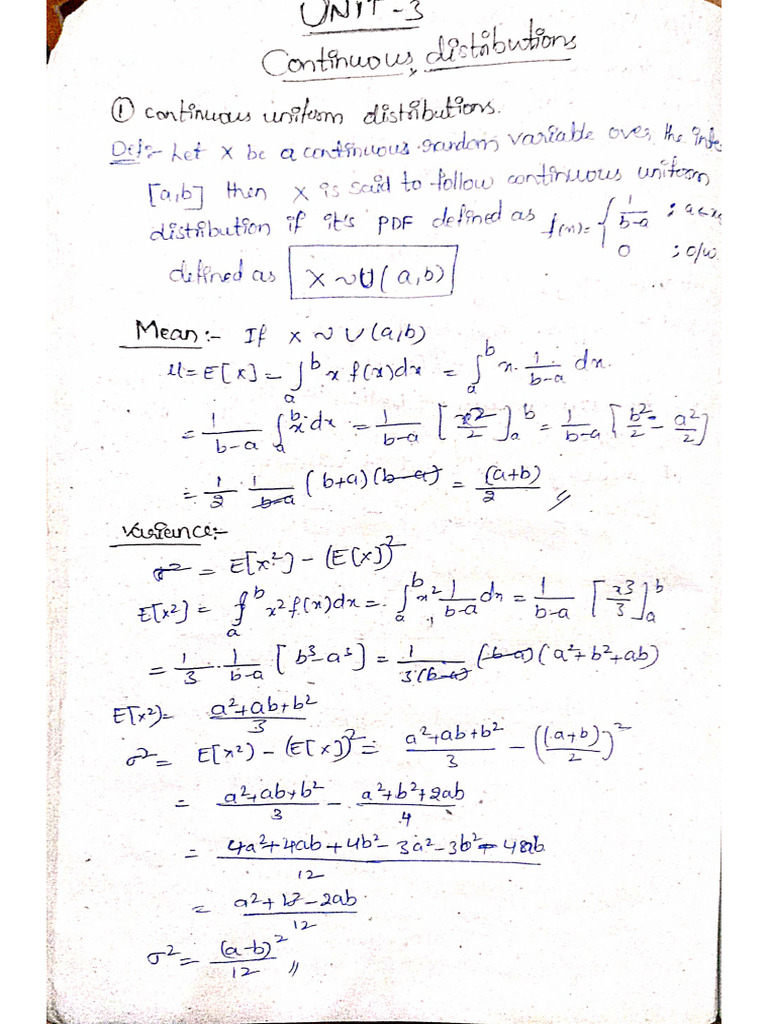 UNIT-3
Continuous distributions
① continuous uniform distributions.
Def:- Let X be a continuous random variable over the inte
[a,b] then X is said to follow continuous uniform
distribution if it's PDF defined as f(x)= { 1/(b-a) ; a<x
0 ; o/w
defined as X ~ U(a,b)
Mean:- If X ~ U(a,b)
μ = E[X] = ∫_a^b x f(x)dx = ∫_a^b x. 1/(b-a) dx.
= 1/(b-a) ∫_a^b x dx = 1/(b-a) [x²/2]_a^b = 1/(b-a) [b²/2 - a²/2]
= 1/2 . 1/(b-a) (b+a)(b-a) = (a+b)/2 //
Variance:-
σ² = E[x²] - (E[X])²
E[x²] = ∫_a^b x² f(x)dx = ∫_a^b x² 1/(b-a) dx = 1/(b-a) [x³/3]_a^b
= 1/3 . 1/(b-a) [b³-a³] = 1/(3(b-a)) (b-a)(a²+b²+ab)
E[x²) = (a²+ab+b²)/3
σ² = E[x²) - (E[X])² = (a²+ab+b²)/3 - ((a+b)/2)²
= (a²+ab+b²)/3 - (a²+b²+2ab)/4
= (4a²+4ab+4b²-3a²-3b²-
= (a²+b²-2ab)/12
σ² = (a-b)²/12 //